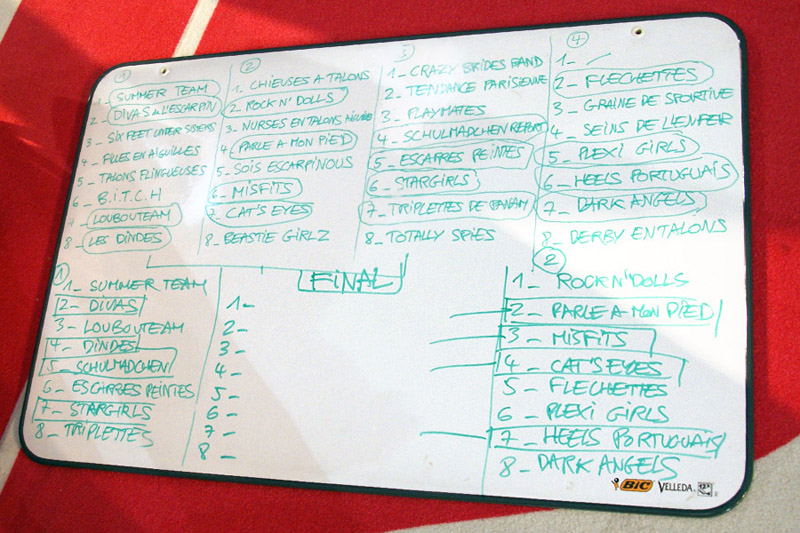 1
1_ SUMMER TEAM
2_ DIVAS DE L'ESCARPIN
3_ SIX FEET UNDER SISTERS
4_ FILLES EN AIGUILLES
5_ TALONS FLINGUEUSES
6_ B.I.T.C.H
7_ LOUBOUTEAM
8_ LES DINDES
2
1_ CHIEUSES A TALONS
2_ ROCK N' DOLLS
3_ NURSES EN TALONS AIGUILLE
4_ PARLE A MON PIED
5_ SOIS ESCARPINOUS
6_ MISFITS
7_ CAT'S EYES
8_ BEASTIE GIRLZ
3
1_ CRAZY BRIDES BAND
2_ TENDANCE PARISIENNE
3_ PLAYMATES
4_ SCHULMADCHEN REPORT
5_ ESCARRES PEINTES
6_ STARGIRLS
7_ TRIPLETTES DE PANAM
8_ TOTALLY SPIES
4
1_
2_ FLECHETTES
3_ GRAINE DE SPORTIVE
4_ SEINS DE L'ENFER
5_ PLEXI GIRLS
6_ HEELS PORTUGUAIS
7_ DARK ANGELS
8_ DERBY EN TALONS
1
1_ SUMMER TEAM
2_ DIVAS
3_ LOUBOUTEAM
4_ DINDES
5_ SCHULMADCHEN
6_ ESCARRES PEINTES
7_ STARGIRLS
8_ TRIPLETTES
FINAL
1_
2_
3_
4_
5_
6_
7_
8_
2
1_ ROCK N' DOLLS
2_ PARLE A MON PIED
3_ MISFITS
4_ CAT'S EYES
5_ FLECHETTES
6_ PLEXI GIRLS
7_ HEELS PORTUGUAIS
8_ DARK ANGELS
BIC VELLEDA